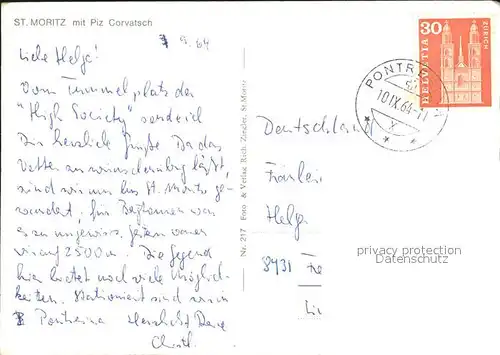 ST. MORITZ mit Piz Corvatsch
9.64
Liebe Helga!
Vom Tummelplatz der
"High Society" sende ich
Dir herzliche Grüße. Da das
Wetter zu wünschen übrig läßt,
sind wir nur bis St. Moritz ge-
wandert, für Bergtouren war
es zu ungewiss. Gestern waren
wir auf 2500 m. Die Gegend
hier bietet noch viele Möglich-
keiten. Stationiert sind wir in
Pontresina Herzlichst Deine
Christl.
Nr. 217 Foto & Verlag Rich. Ziegler, St. Moritz
HELVETIA 30 ZÜRICH
PONTRESINA
10.IX.64-11
Deutschland
Fräulein
Helga
8431
privacy protection
Datenschutz